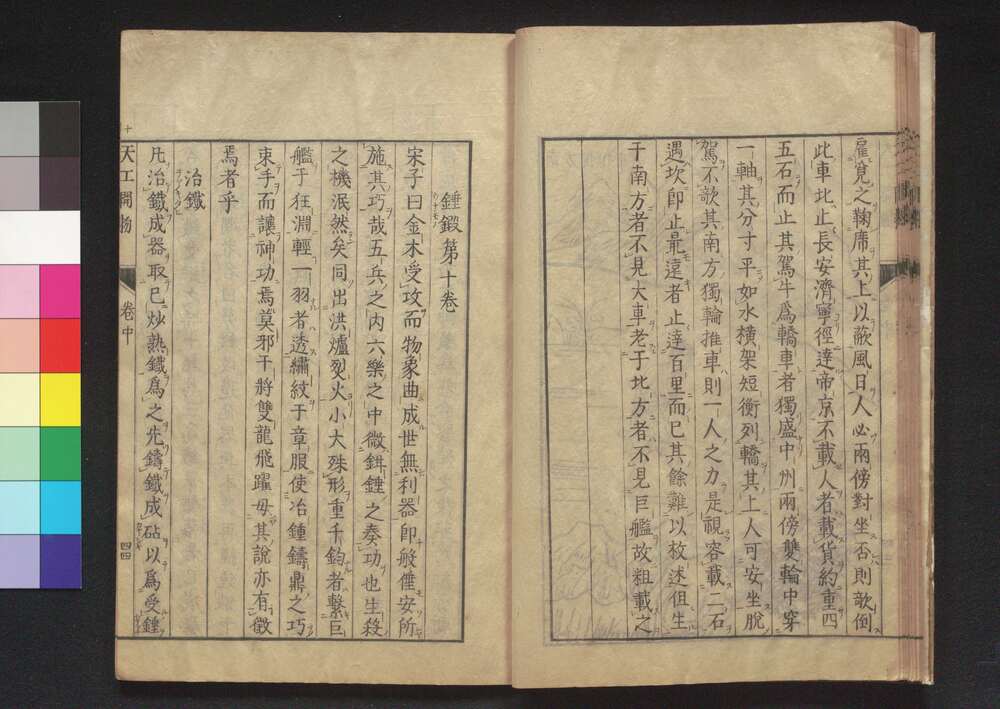 雇覓之鞠席其上以蔽風日人必兩傍對坐否則欹倒
此車北止長安濟寧徑達帝京不載人者載貨約重四
五石而止其駕牛爲轎車者獨盛中州兩傍雙輪中穿
一軸其分寸平如水橫架短衡列轎其上人可安坐脫
駕不欹其南方獨輪推車則一人之力是視容載二石
遇坎即止最遠者止達百里而已其餘難以枚述但生
于南方者不見大車老于北方者不見巨艦故粗載之
錘鍛第十卷
宋子曰金木受攻而物象曲成世無利器即般倕安所
施其巧哉五兵之内六樂之中微鉗錘之奏功也生殺
之機泯然矣同出洪爐烈火小大殊形重千鈞者繫巨
艦于狂淵輕一羽者透繡紋于章服使冶鍾鑄鼎之巧
束手而讓神功焉莫邪干將雙龍飛躍毋其說亦有徵
焉者乎
治鐵
凡治鐵成器取已炒熟鐵爲之先鑄鐵成砧以爲受錘
天工開物
卷中
四四